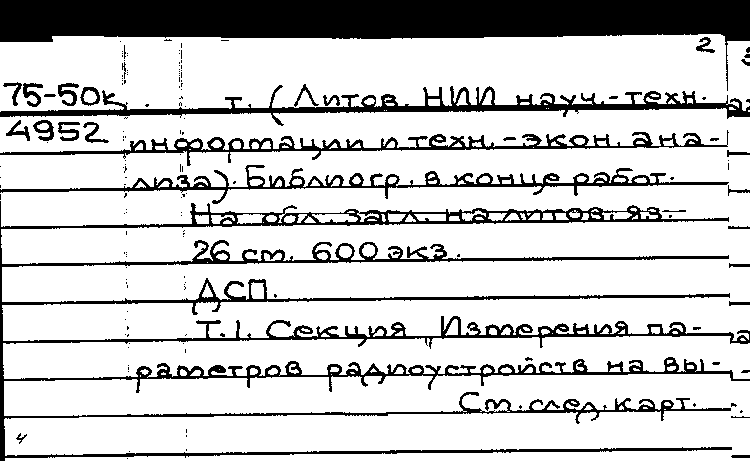 2
75-50к т. (Литов. НИИ науч.-техн.
4952 информации и техн.-экон. ана-
лиза). Библиогр. в конце работ.
На обл. загл. на литов. яз.
26 см. 600 экз.
ДСП.
Т.1. Секция "Измерения па-
раметров радиоустройств на вы-
См. след. карт.
4